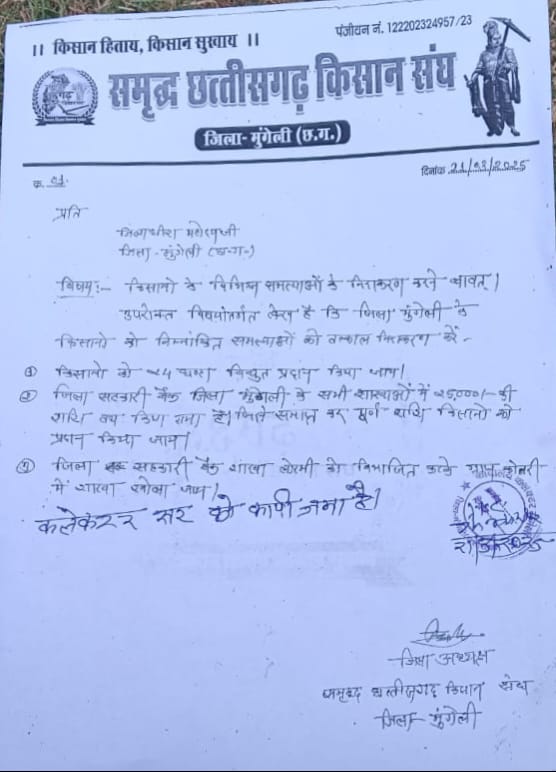 पंजीयन नं. 122202324957/23
।। किसान हिताय, किसान सुखाय ।।
समृद्ध छत्तीसगढ़ किसान संघ
जिला- मुंगेली (छ.ग.)
दिनांक 21/03/2025
क्र. 01.
प्रति
जिलाधीश महोदयजी
जिला - मुंगेली (छ.ग.)
विषय :- किसानो के विभिन्न समस्याओं के निराकरण करने बाबत्।
उपरोक्त विषयांतर्गत लेख है कि जिला मुंगेली के
किसानो को निम्नांकित समस्याओं को तत्काल निराकरण करें -
① किसानो को 24 घण्टा विद्युत प्रदान किया जाय।
② जिला सहकारी बैंक जिला मुंगेली के सभी शाखाओं में 25,000/- की
राशि तय किया गया है। जिसे समाप्त कर पूर्ण राशि किसानो को
प्रदान किया जाय।
③ जिला सहकारी बैंक शाखा लोरमी को विभाजित करके
में शाखा खोला जाय।
कलेक्टर सर को कापी जमा है।
जिला अध्यक्ष
समृद्ध छत्तीसगढ़ किसान संघ
जिला - मुंगेली